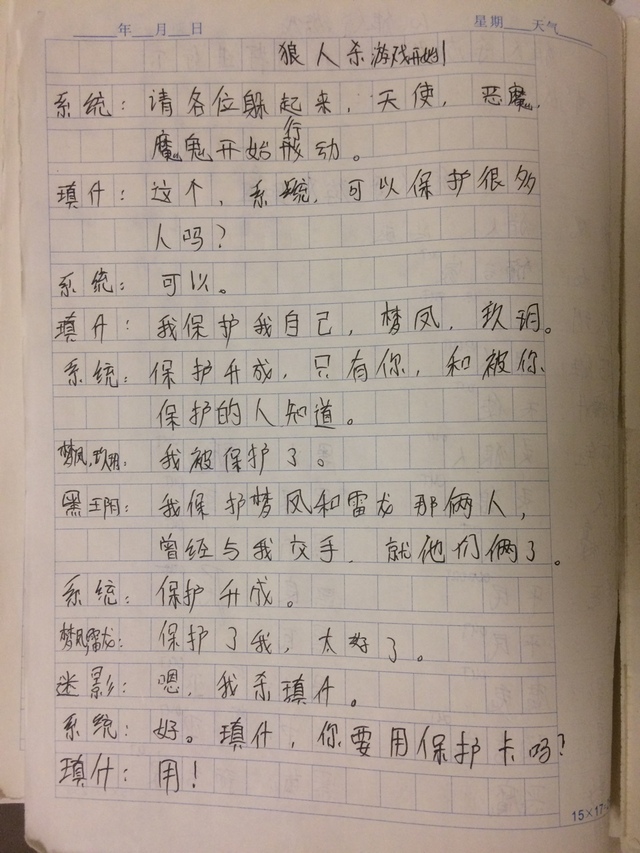 年 月 日 星期 天气
狼人杀游戏开始！
系统：请各位躲起来，天使，恶魔，
魔鬼开始行动。
瑱什：这个，系统，可以保护很多
人吗？
系统：可以。
瑱什：我保护我自己，梦凤，玖玥。
系统：保护升成，只有你，和被你
保护的人知道。
梦凤，玖玥：我被保护了。
黑玥：我保护梦凤和雷龙那俩人，
曾经与我交手，就他们俩了。
系统：保护升成。
梦凤雷龙：保护了我，太好了。
迷影：嗯，我杀瑱什。
系统：好。瑱什，你要用保护卡吗？
瑱什：用！
15×17